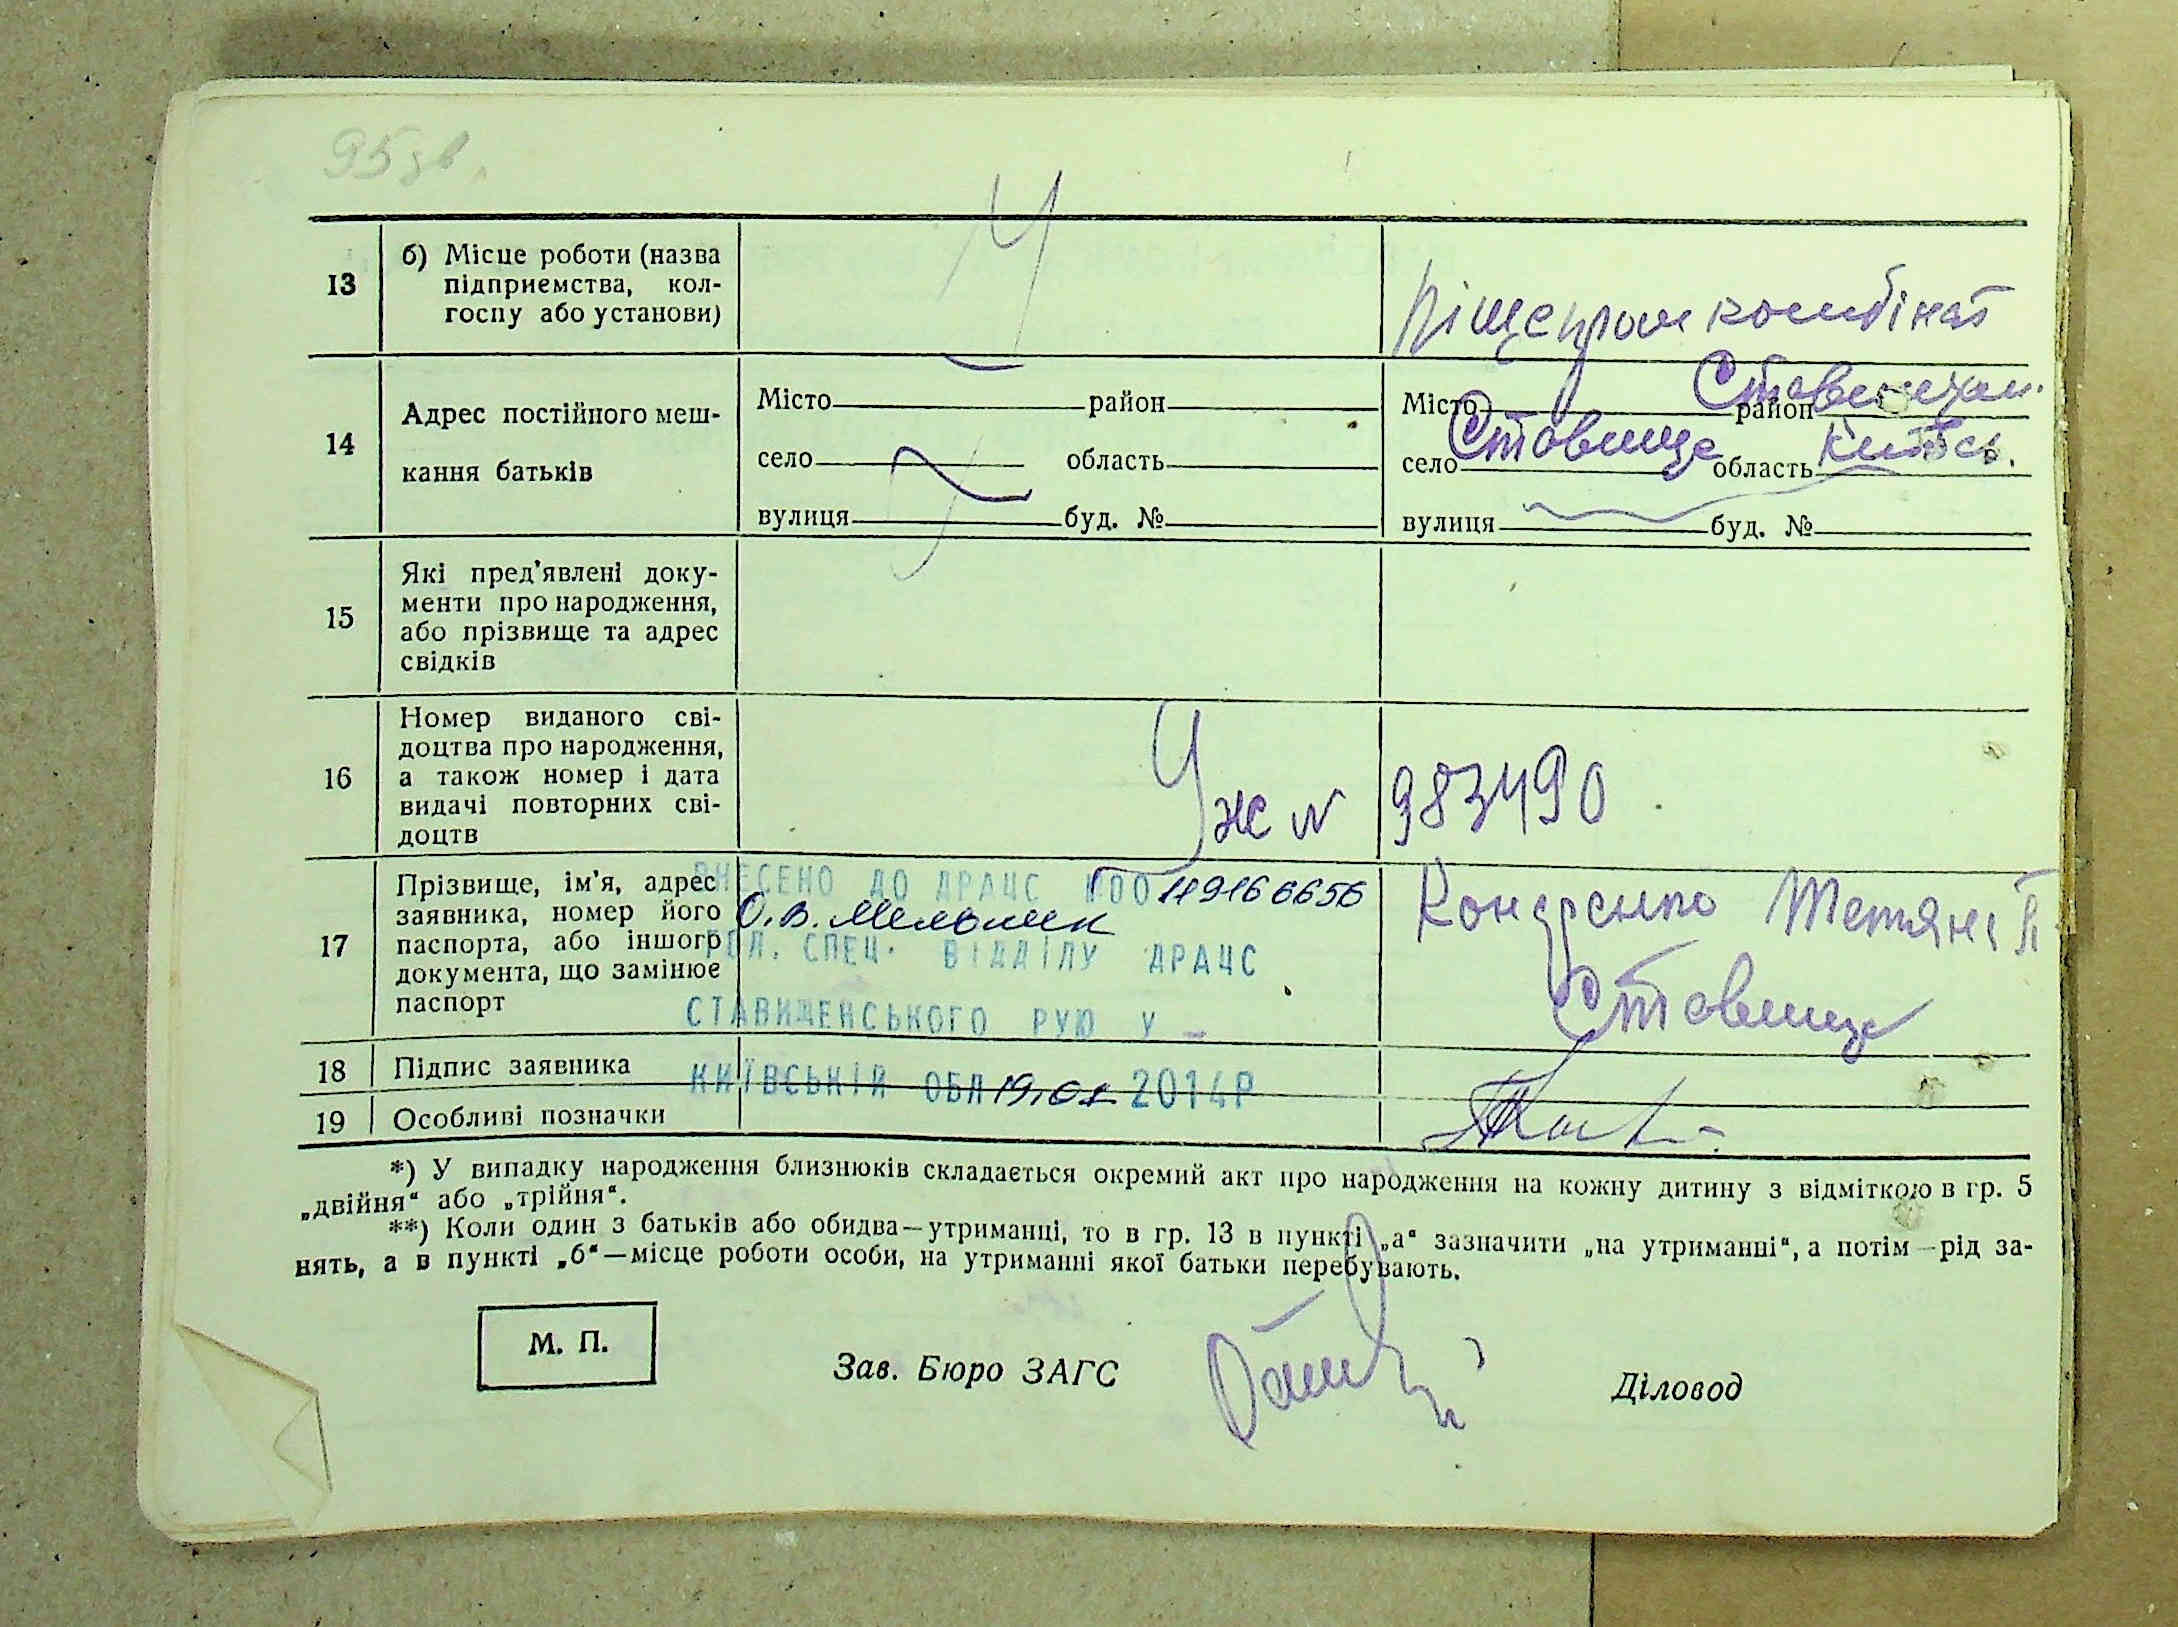 95 зв.
13
б) Місце роботи (назва
підприємства, кол-
госпу або установи)
Піщепромкомбінат
14
Адрес постійного меш-
кання батьків
Місто район
село область
вулиця буд. №
Місто район Ставищан.
село Ставище область Київсь.
вулиця буд. №
15
Які пред'явлені доку-
менти про народження,
або прізвище та адрес
свідків
16
Номер виданого сві-
доцтва про народження,
а також номер і дата
видачі повторних сві-
доцтв
УЖ N 983490
17
Прізвище, ім'я, адрес
заявника, номер його
паспорта, або іншого
документа, що замінює
паспорт
ВНЕСЕНО ДО ДРАЦС №00119166656
О.В. Мельник
СПЕЦ. ВІДДІЛУ ДРАЦС
СТАВИЩЕНСЬКОГО РУЮ У
КИЇВСЬКІЙ ОБЛ 19.01 2014Р
Тетяна П.
Ставище
18
Підпис заявника
19
Особливі позначки
*) У випадку народження близнюків складається окремий акт про народження на кожну дитину з відміткою в гр. 5
„двійня“ або „трійня“.
**) Коли один з батьків або обидва—утриманці, то в гр. 13 в пункті „а“ зазначити „на утриманні“, а потім—рід за-
нять, а в пункті „б“—місце роботи особи, на утриманні якої батьки перебувають.
М. П.
Зав. Бюро ЗАГС
Діловод